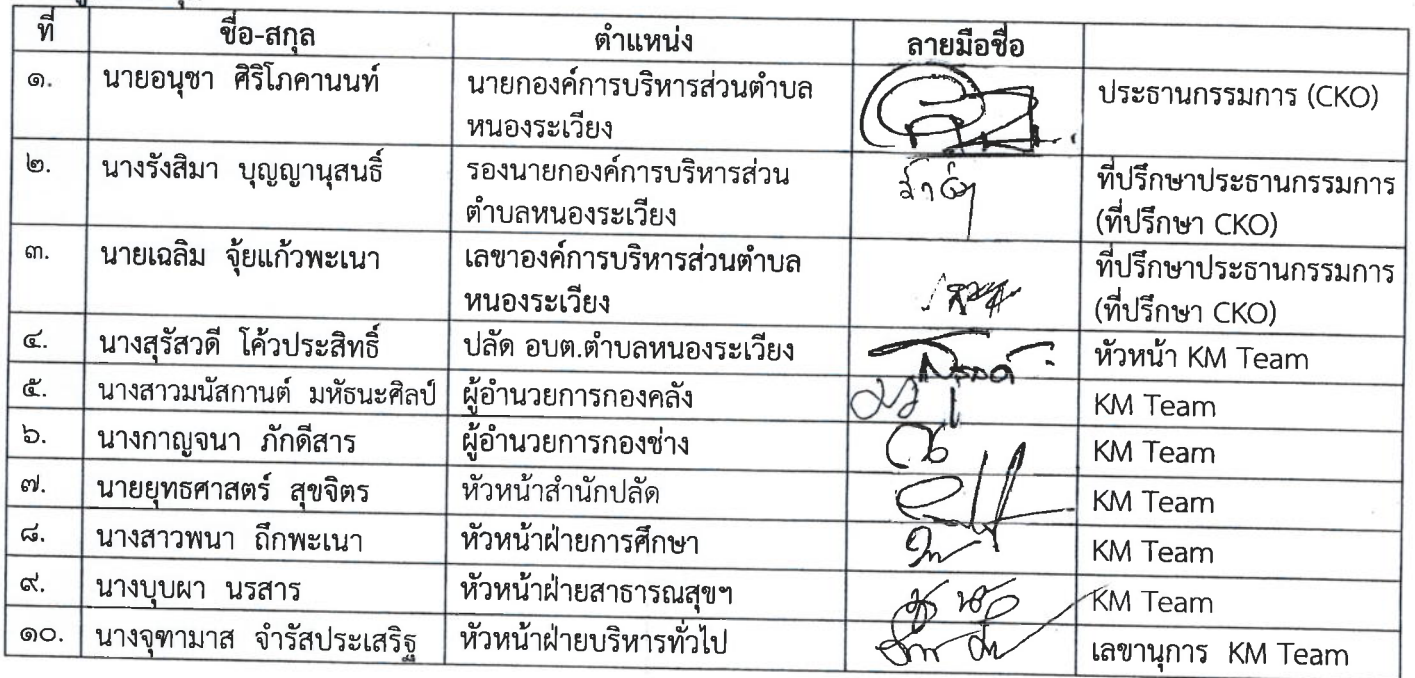 ที่ ชื่อ-สกุล ตำแหน่ง ลายมือชื่อ
๑. นายอนุชา ศิริโภคานนท์ นายกองค์การบริหารส่วนตำบล ประธานกรรมการ (CKO)
หนองระเวียง
๒. นางรังสิมา บุญญานุสนธิ์ รองนายกองค์การบริหารส่วน ที่ปรึกษาประธานกรรมการ
ตำบลหนองระเวียง (ที่ปรึกษา CKO)
๓. นายเฉลิม จุ้ยแก้วพะเนา เลขาองค์การบริหารส่วนตำบล ที่ปรึกษาประธานกรรมการ
หนองระเวียง (ที่ปรึกษา CKO)
๔. นางสุรัสวดี โค้วประสิทธิ์ ปลัด อบต.ตำบลหนองระเวียง หัวหน้า KM Team
๕. นางสาวมนัสกานต์ มหัธนะศิลป์ ผู้อำนวยการกองคลัง KM Team
๖. นางกาญจนา ภักดีสาร ผู้อำนวยการกองช่าง KM Team
๗. นายยุทธศาสตร์ สุขจิตร หัวหน้าสำนักปลัด KM Team
๘. นางสาวพนา ถึกพะเนา หัวหน้าฝ่ายการศึกษา KM Team
๙. นางบุบผา นรสาร หัวหน้าฝ่ายสาธารณสุขฯ KM Team
๑๐. นางจุฑามาส จำรัสประเสริฐ หัวหน้าฝ่ายบริหารทั่วไป เลขานุการ KM Team